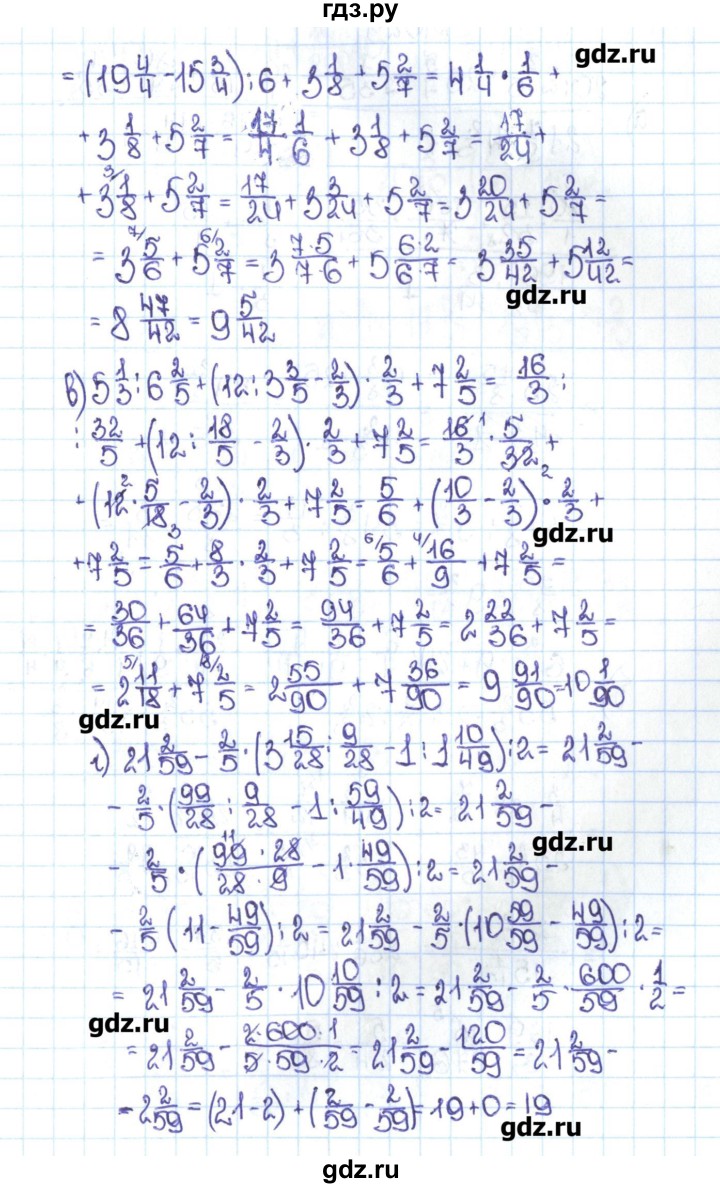 гдз.ру
gdz.ru
= (19 4/4 - 15 3/4) : 6 + 3 1/8 + 5 2/7 = 4 1/4 · 1/6 +
+ 3 1/8 + 5 2/7 = 17/4 · 1/6 + 3 1/8 + 5 2/7 = 17/24 +
+ 3 3/ 1/8 + 5 2/7 = 17/24 + 3 3/24 + 5 2/7 = 3 20/24 + 5 2/7 =
= 3 7/ 5/6 + 5 6/ 2/7 = 3 7·5/7·6 + 5 6·2/6·7 = 3 35/42 + 5 12/42 =
gdz.ru
= 8 47/42 = 9 5/42
в) 5 1/3 : 6 2/5 + (12 : 3 3/5 - 2/3) · 2/3 + 7 2/5 = 16/3 :
: 32/5 + (12 : 18/5 - 2/3) · 2/3 + 7 2/5 = 16/3 1 · 5/32 2 +
+ (12 2 · 5/18 3 - 2/3) · 2/3 + 7 2/5 = 5/6 + (10/3 - 2/3) · 2/3 +
gdz.ru
+ 7 2/5 = 5/6 + 8/3 · 2/3 + 7 2/5 = 6/ 5/6 + 4/ 16/9 + 7 2/5 =
= 30/36 + 64/36 + 7 2/5 = 94/36 + 7 2/5 = 2 22/36 + 7 2/5 =
= 2 5/ 11/18 + 7 18/ 2/5 = 2 55/90 + 7 36/90 = 9 91/90 = 10 1/90
gdz.ru
г) 21 2/59 - 2/5 · (3 15/28 : 9/28 - 1 : 1 10/49) : 2 = 21 2/59 -
- 2/5 · (99/28 : 9/28 - 1 : 59/49) : 2 = 21 2/59 -
gdz.ru
- 2/5 · (99 11 · 28/28 · 9 - 1 · 49/59) : 2 = 21 2/59 -
- 2/5 (11 - 49/59) : 2 = 21 2/59 - 2/5 · (10 59/59 - 49/59) : 2 =
= 21 2/59 - 2/5 · 10 10/59 : 2 = 21 2/59 - 2/5 · 600/59 · 1/2 =
gdz.ru
= 21 2/59 - 2·600·1/5·59·2 = 21 2/59 - 120/59 = 21 2/59 -
- 2 2/59 = (21 - 2) + (2/59 - 2/59) = 19 + 0 = 19
gdz.ru
gdz.ru